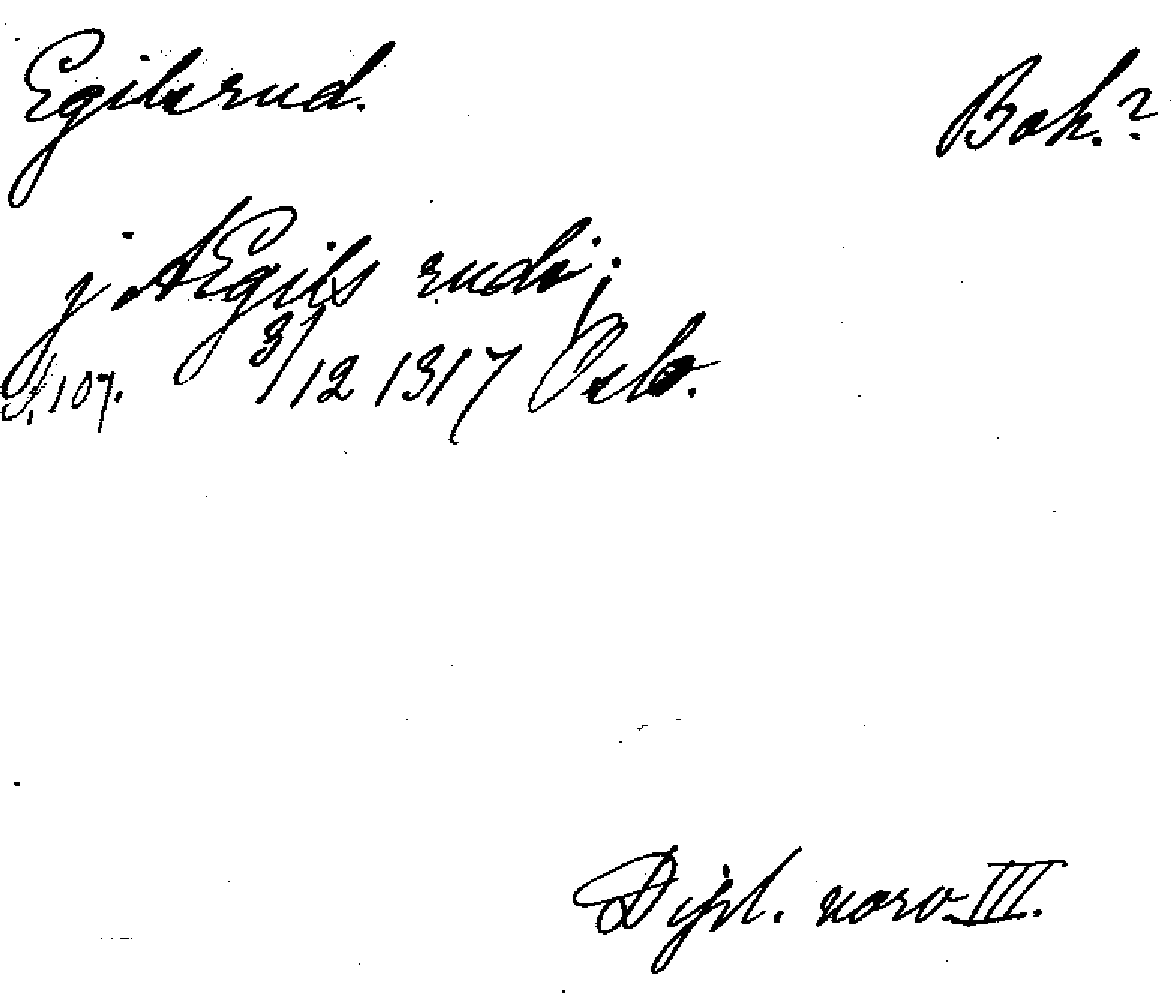 Egilsrud. Bok.?
j Ægils rudi;
S. 107. 3/12 1317 Oslo.
Dipl. norv. III.